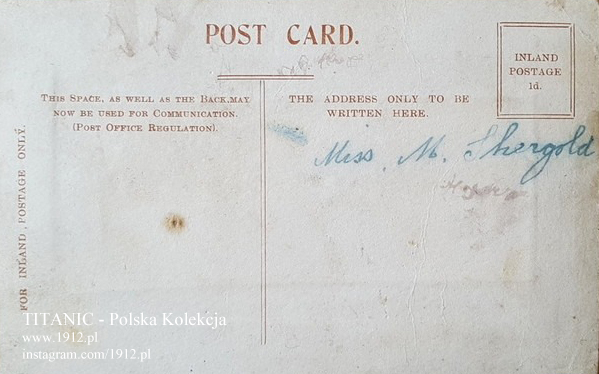 POST CARD.
INLAND
POSTAGE
1d.
THIS SPACE, AS WELL AS THE BACK,MAY
NOW BE USED FOR COMMUNICATION.
(POST OFFICE REGULATION).
THE ADDRESS ONLY TO BE
WRITTEN HERE.
Miss. M. Shergold
FOR INLAND POSTAGE ONLY.
TITANIC - Polska Kolekcja
www.1912.pl
instagram.com/1912.pl